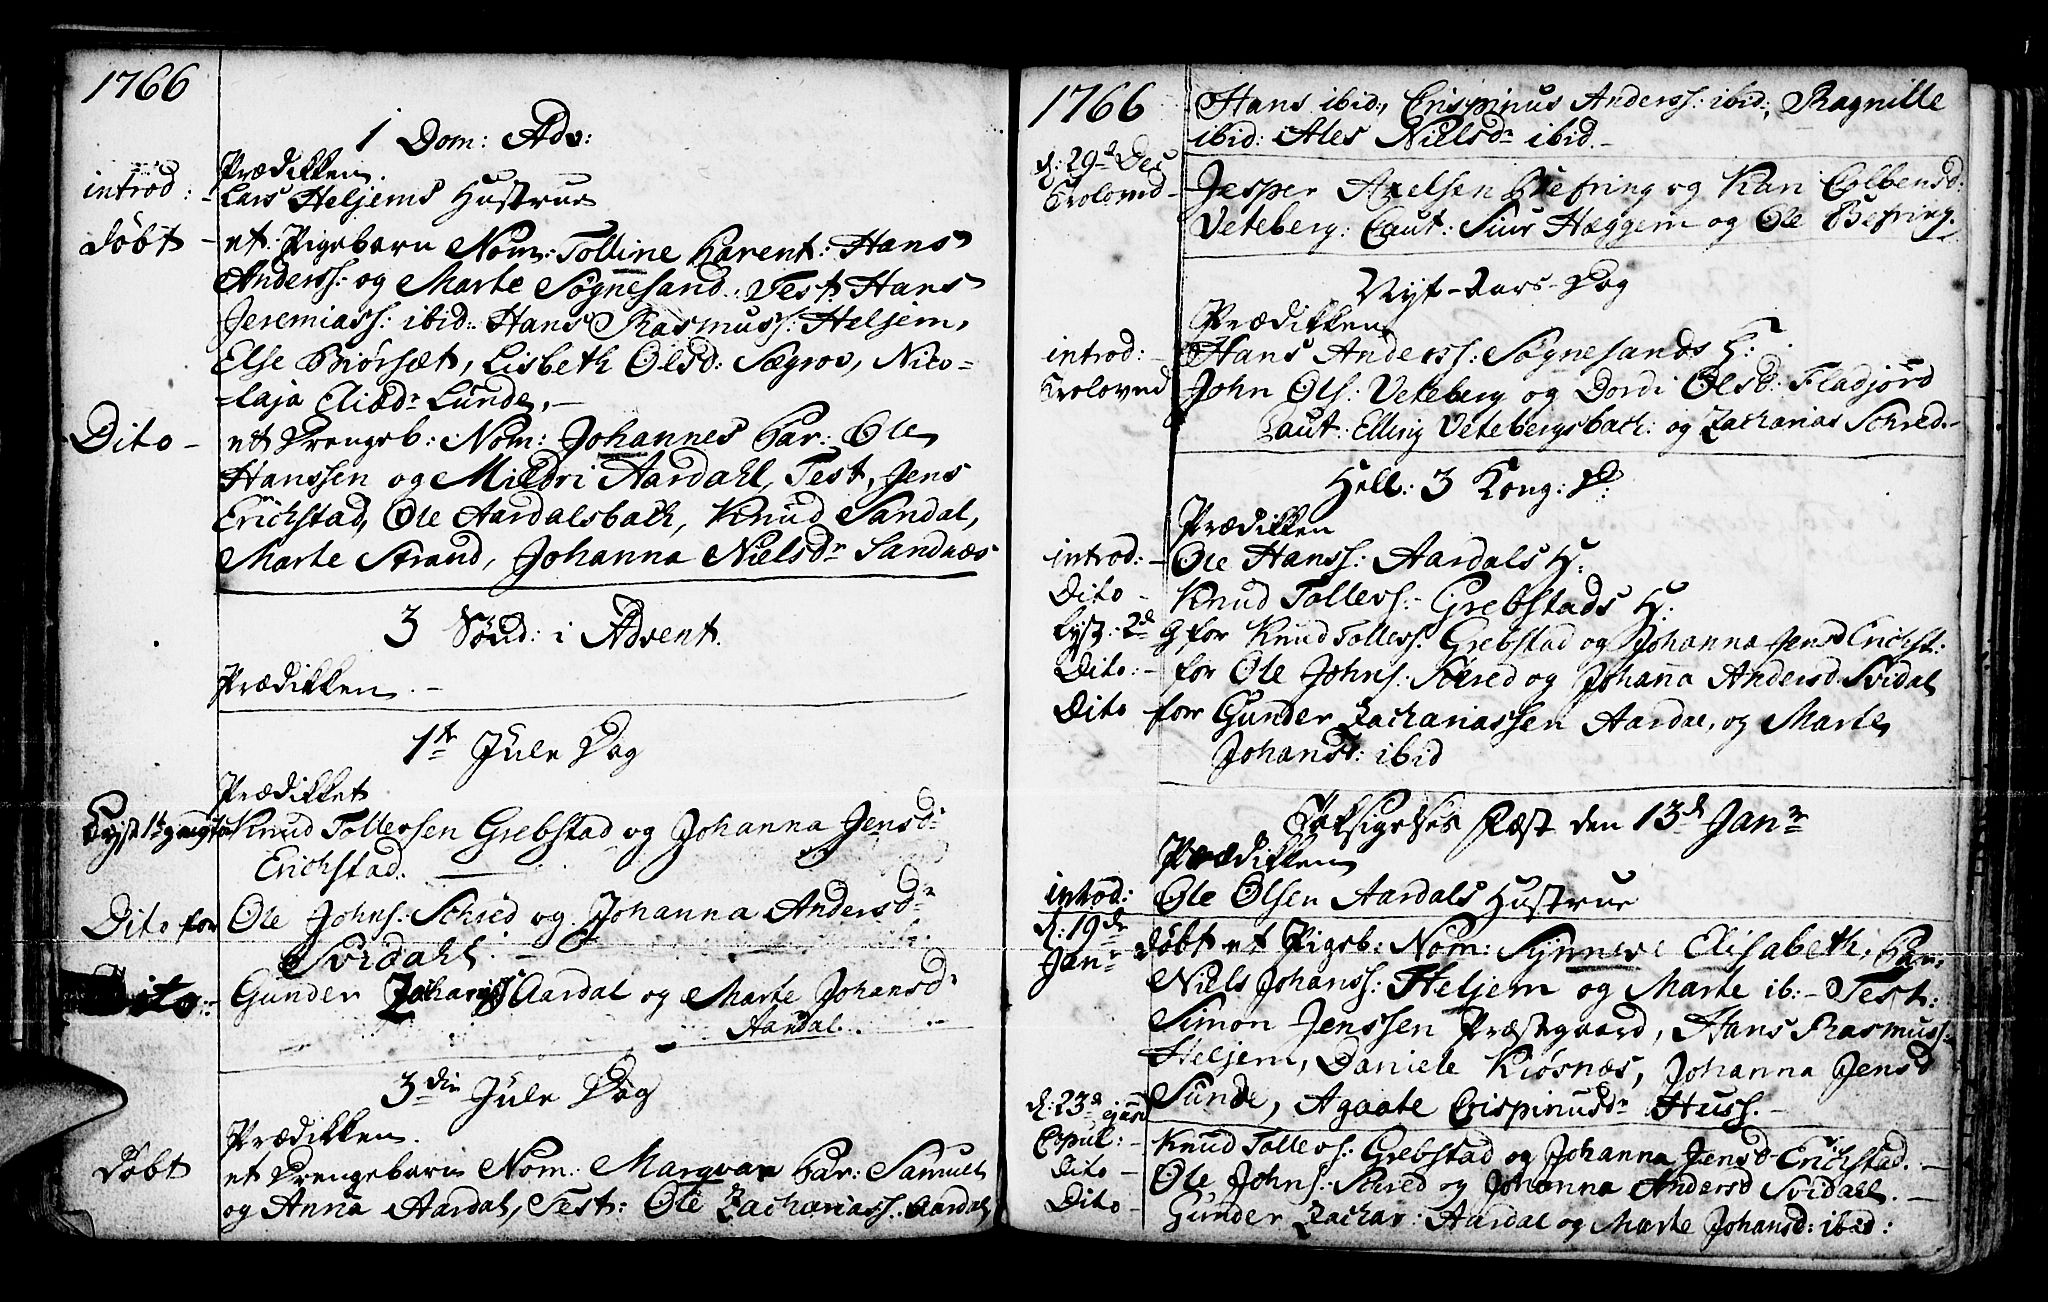 1766
1 Dom: Adv:
Prædikken.
introd: - Lars Heljems Hustrue
Døbt - et Pigebarn Nom: Tolline Parent: Hans
Anderss: og Marte Søgnesand. Test. Hans
Jeremiass: ibid: Hans Rasmuss: Heljem,
Else Biørsæt, Lisbeth Olsd: Sægrov, Nico-
laja Eliædr Lunde. -
Dito - et Drengeb: Nom: Johannes Par: Ole
Hanssen og Mildri Aardahl, Test, Jens
Erichstad, Ole Aardalsbach, Knud Sandal,
Marte Strand, Johanna Nielsdr Sandnæs
3 Sönd: i Advent.
Prædikken. -
1te Jule Dag
Prædikket
Lyst 1te gang for Knud Tollevsen Grebstad og Johanna Jensd:
Erichstad.
Dito for Ole Johns: Schred og Johanna Andersdr
Svidahl. -
Dito: Gunder Zacharias: Aardal og Marte Johansd:
Aardal.
3die Jule Dag
Prædikken.
Døbt et Drengebarn Nom: Marqvar Par: Samuel
og Anna Aardal, Test: Ole Zachariass: Aardal
1766 Hans ibid:, Crispinus Anderss: ibid:, Ragnille
ibid: Ales Nielsdr ibid. -
d: 29d Dec
Troloved - Jesper Axelsen Befring og Kari Colbensd:
Veteberg: Caut: Siur Hæggem og Ole Befring.
Nyt-Aars-Dag
Prædikken
introd: - Hans Anderss: Søgnesands H:
Troloved John Ols: Veteberg og Dordi Olsd: Fladjord
Caut: Elling Vetebergsbach: og Zacharias Schred. -
Hell: 3 Kong: D:
Prædikken
introd: - Ole Hanss: Aardals H:
Dito - Knud Tollevs: Grebstads H:
Lyst: 2d G for Knud Tollevs: Grebstad og Johanna Jensd Erichst:
Dito: - for Ole Johns: Schred og Johanna Andersd Svidal
Dito for Gunder Zachariassen Aardal, og Marte
Johansd: ibid
Taksigelses Fæst den 13d Janr
Prædikken
introd: Ole Olsen Aardals Hustrue
d: 19de
Janr Døbt et Pigeb: Nom: Synneve Elisabeth, Par:
Niels Johanss: Heljem og Marte ib: - Test:
Simon Jenssen Præstegaard, Hans Rasmuss:
Heljem, Daniele Kiøsnæs, Johanna Jensd
Sunde, Agaate Crispinusdr Huss. -
d: 23d ejusd
Copul: - Knud Tollevs: Grebstad og Johanna Jensd Erichstad. -
Dito - Ole Johns: Schred og Johanna Andersd Svidahl. -
Dito - Gunder Zachar: Aardal og Marte Johansd: ibid: